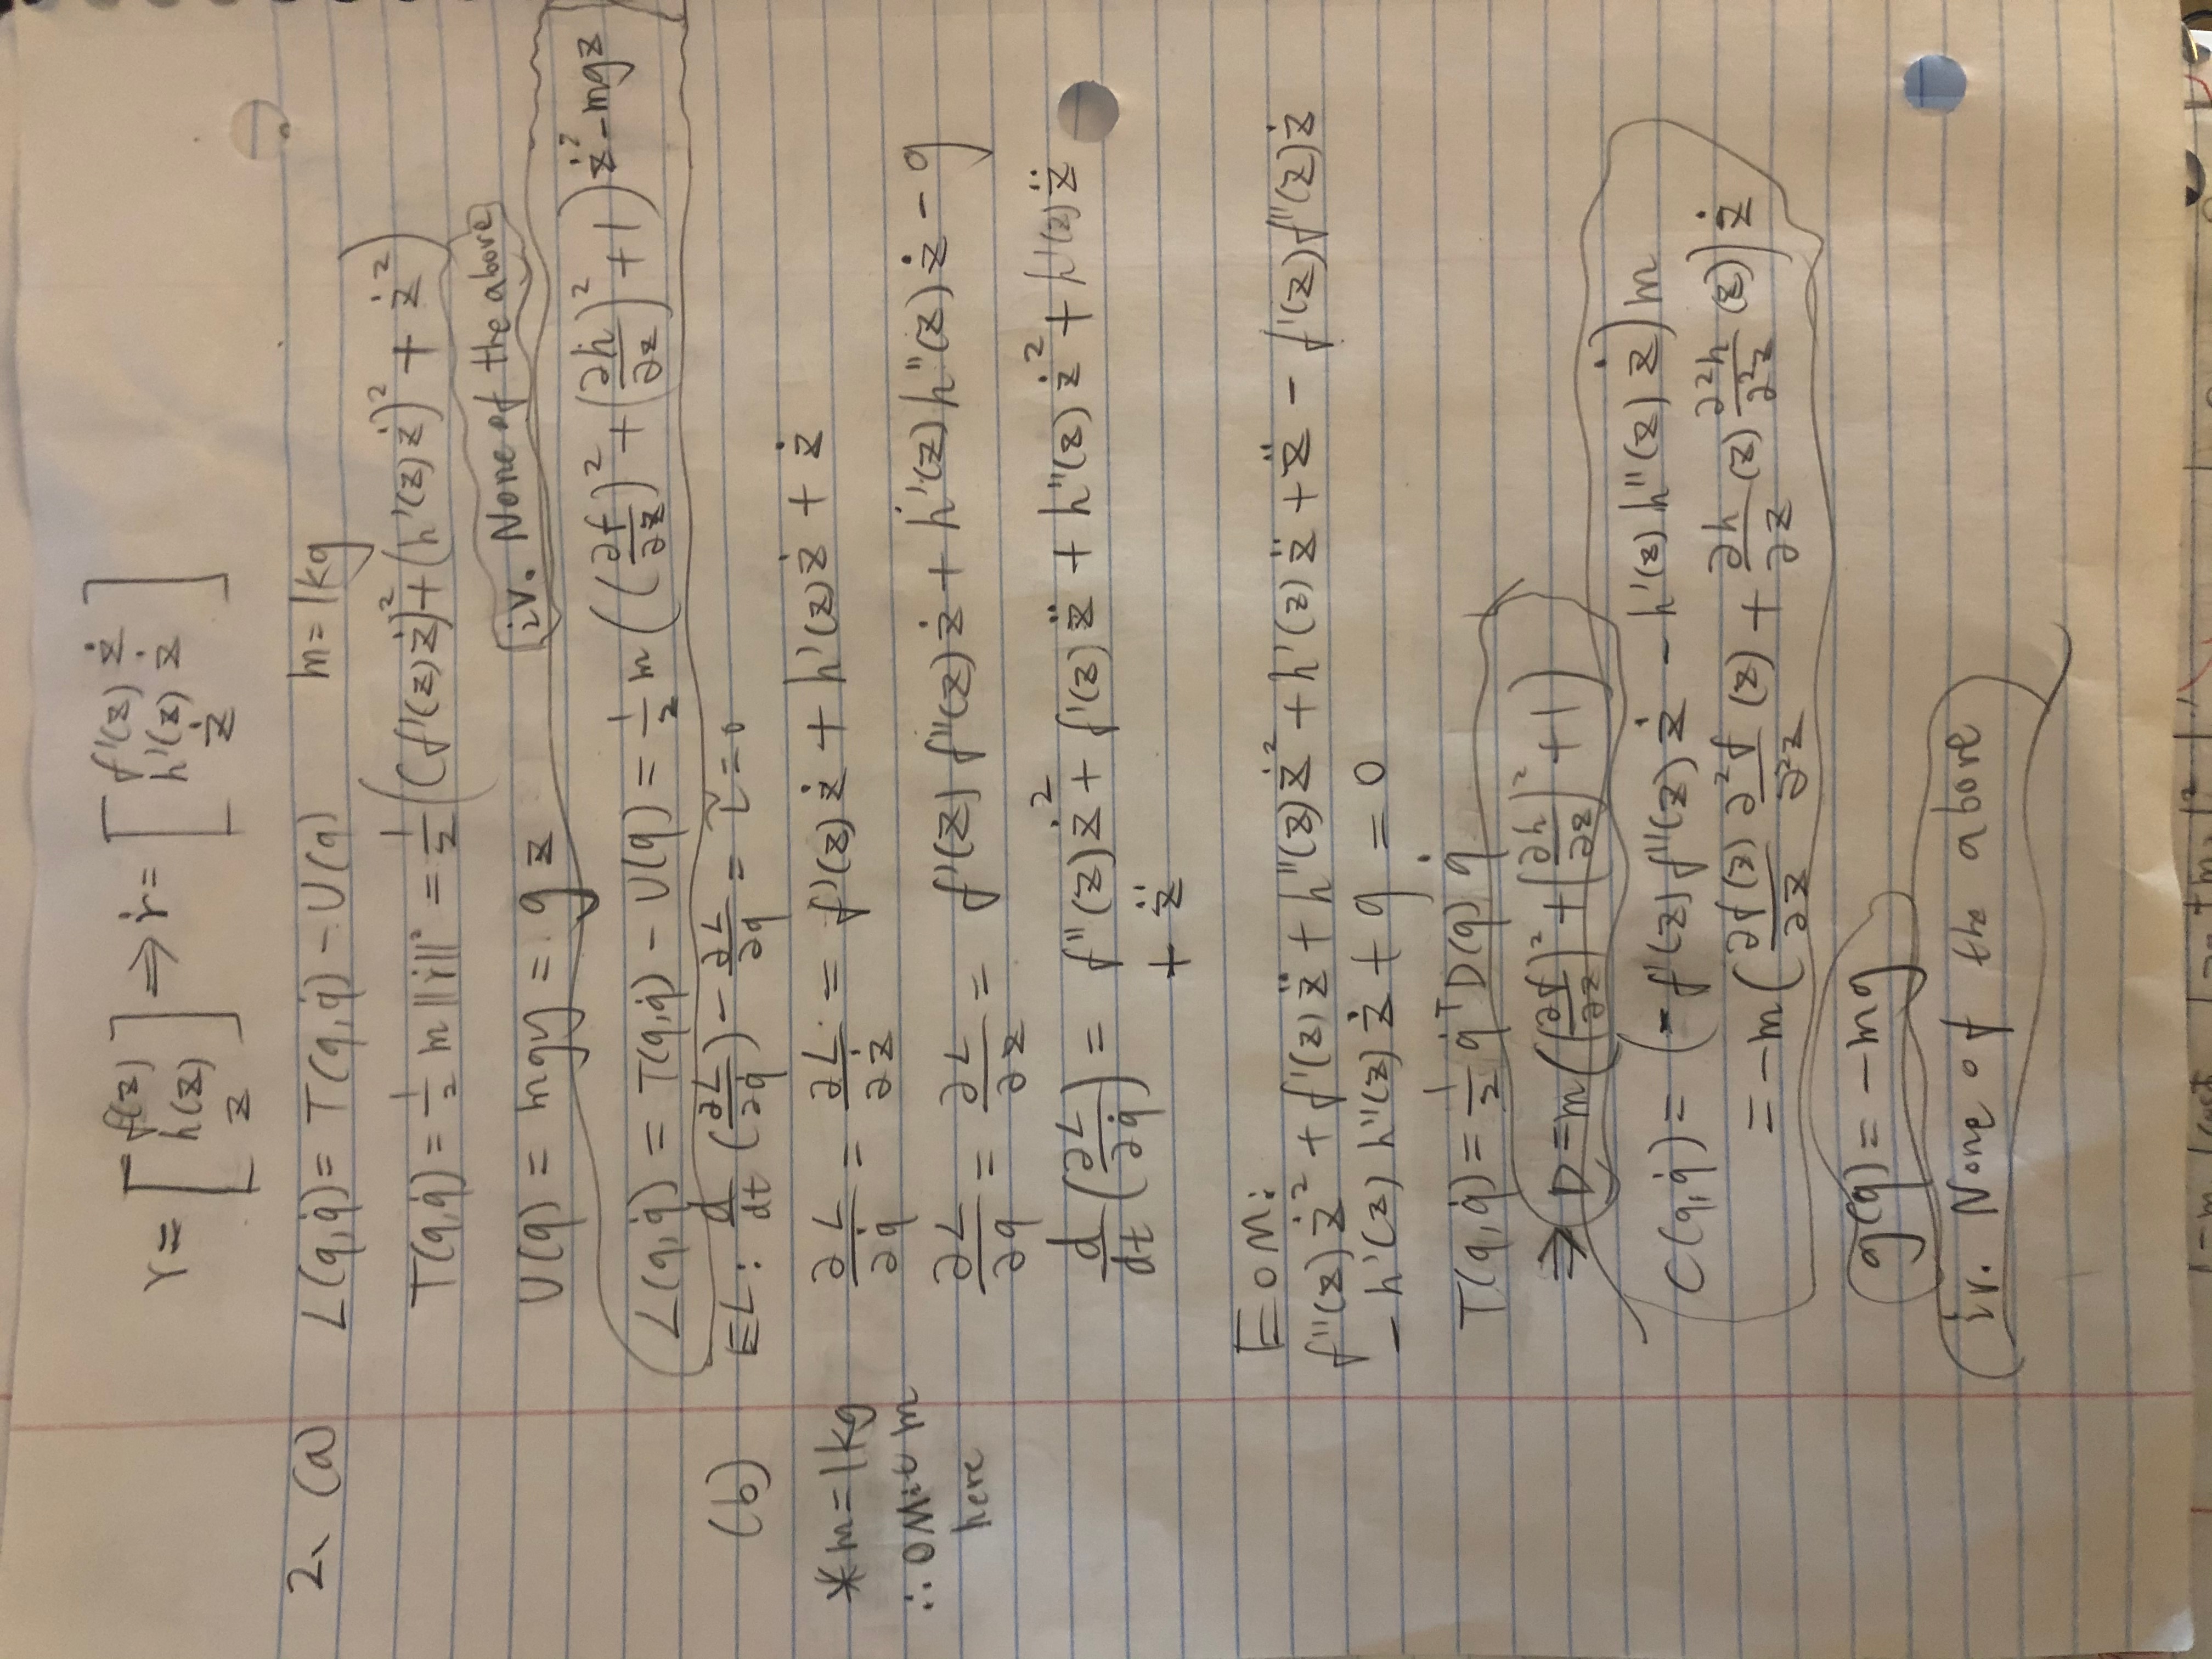 r = [ f(z) h(z) z ] ⇒ ṙ = [ f'(z) ż h'(z) ż ż ]
2、(a) L(q,q̇) = T(q,q̇) - U(q) m = 1kg
T(q,q̇) = 1/2 m ||ṙ||² = 1/2 ((f'(z)ż)² + (h'(z)ż)² + ż²)
U(q) = mgy = g z
iv. None of the above
L(q,q̇) = T(q,q̇) - U(q) = 1/2 m ((∂f/∂z)² + (∂h/∂z)² + 1) ż² - mgz
(b) EL: d/dt (∂L/∂q̇) - ∂L/∂q = τ = 0
∂L/∂q̇ = ∂L/∂ż = f'(z) ż + h'(z) ż + ż
*m = 1kg
∴ omit m
here
∂L/∂q = ∂L/∂z = f'(z) f''(z) ż + h'(z) h''(z) ż - g
d/dt (∂L/∂q̇) = f''(z) ż² + f'(z) z̈ + h''(z) ż² + h'(z) z̈
+ z̈
EOM:
f''(z) ż² + f'(z) z̈ + h''(z) ż² + h'(z) z̈ + z̈ - f'(z) f''(z) ż
- h'(z) h''(z) ż + g = 0
T(q,q̇) = 1/2 q̇ᵀ D(q) q̇
⇒ D = m ((∂f/∂z)² + (∂h/∂z)² + 1)
C(q,q̇) = (- f'(z) f''(z) ż - h'(z) h''(z) ż) m
= -m (∂f(z)/∂z ∂²f/∂²z (z) + ∂h/∂z (z) ∂²h/∂²z (z)) ż
g(q) = -mg
iv. None of the above